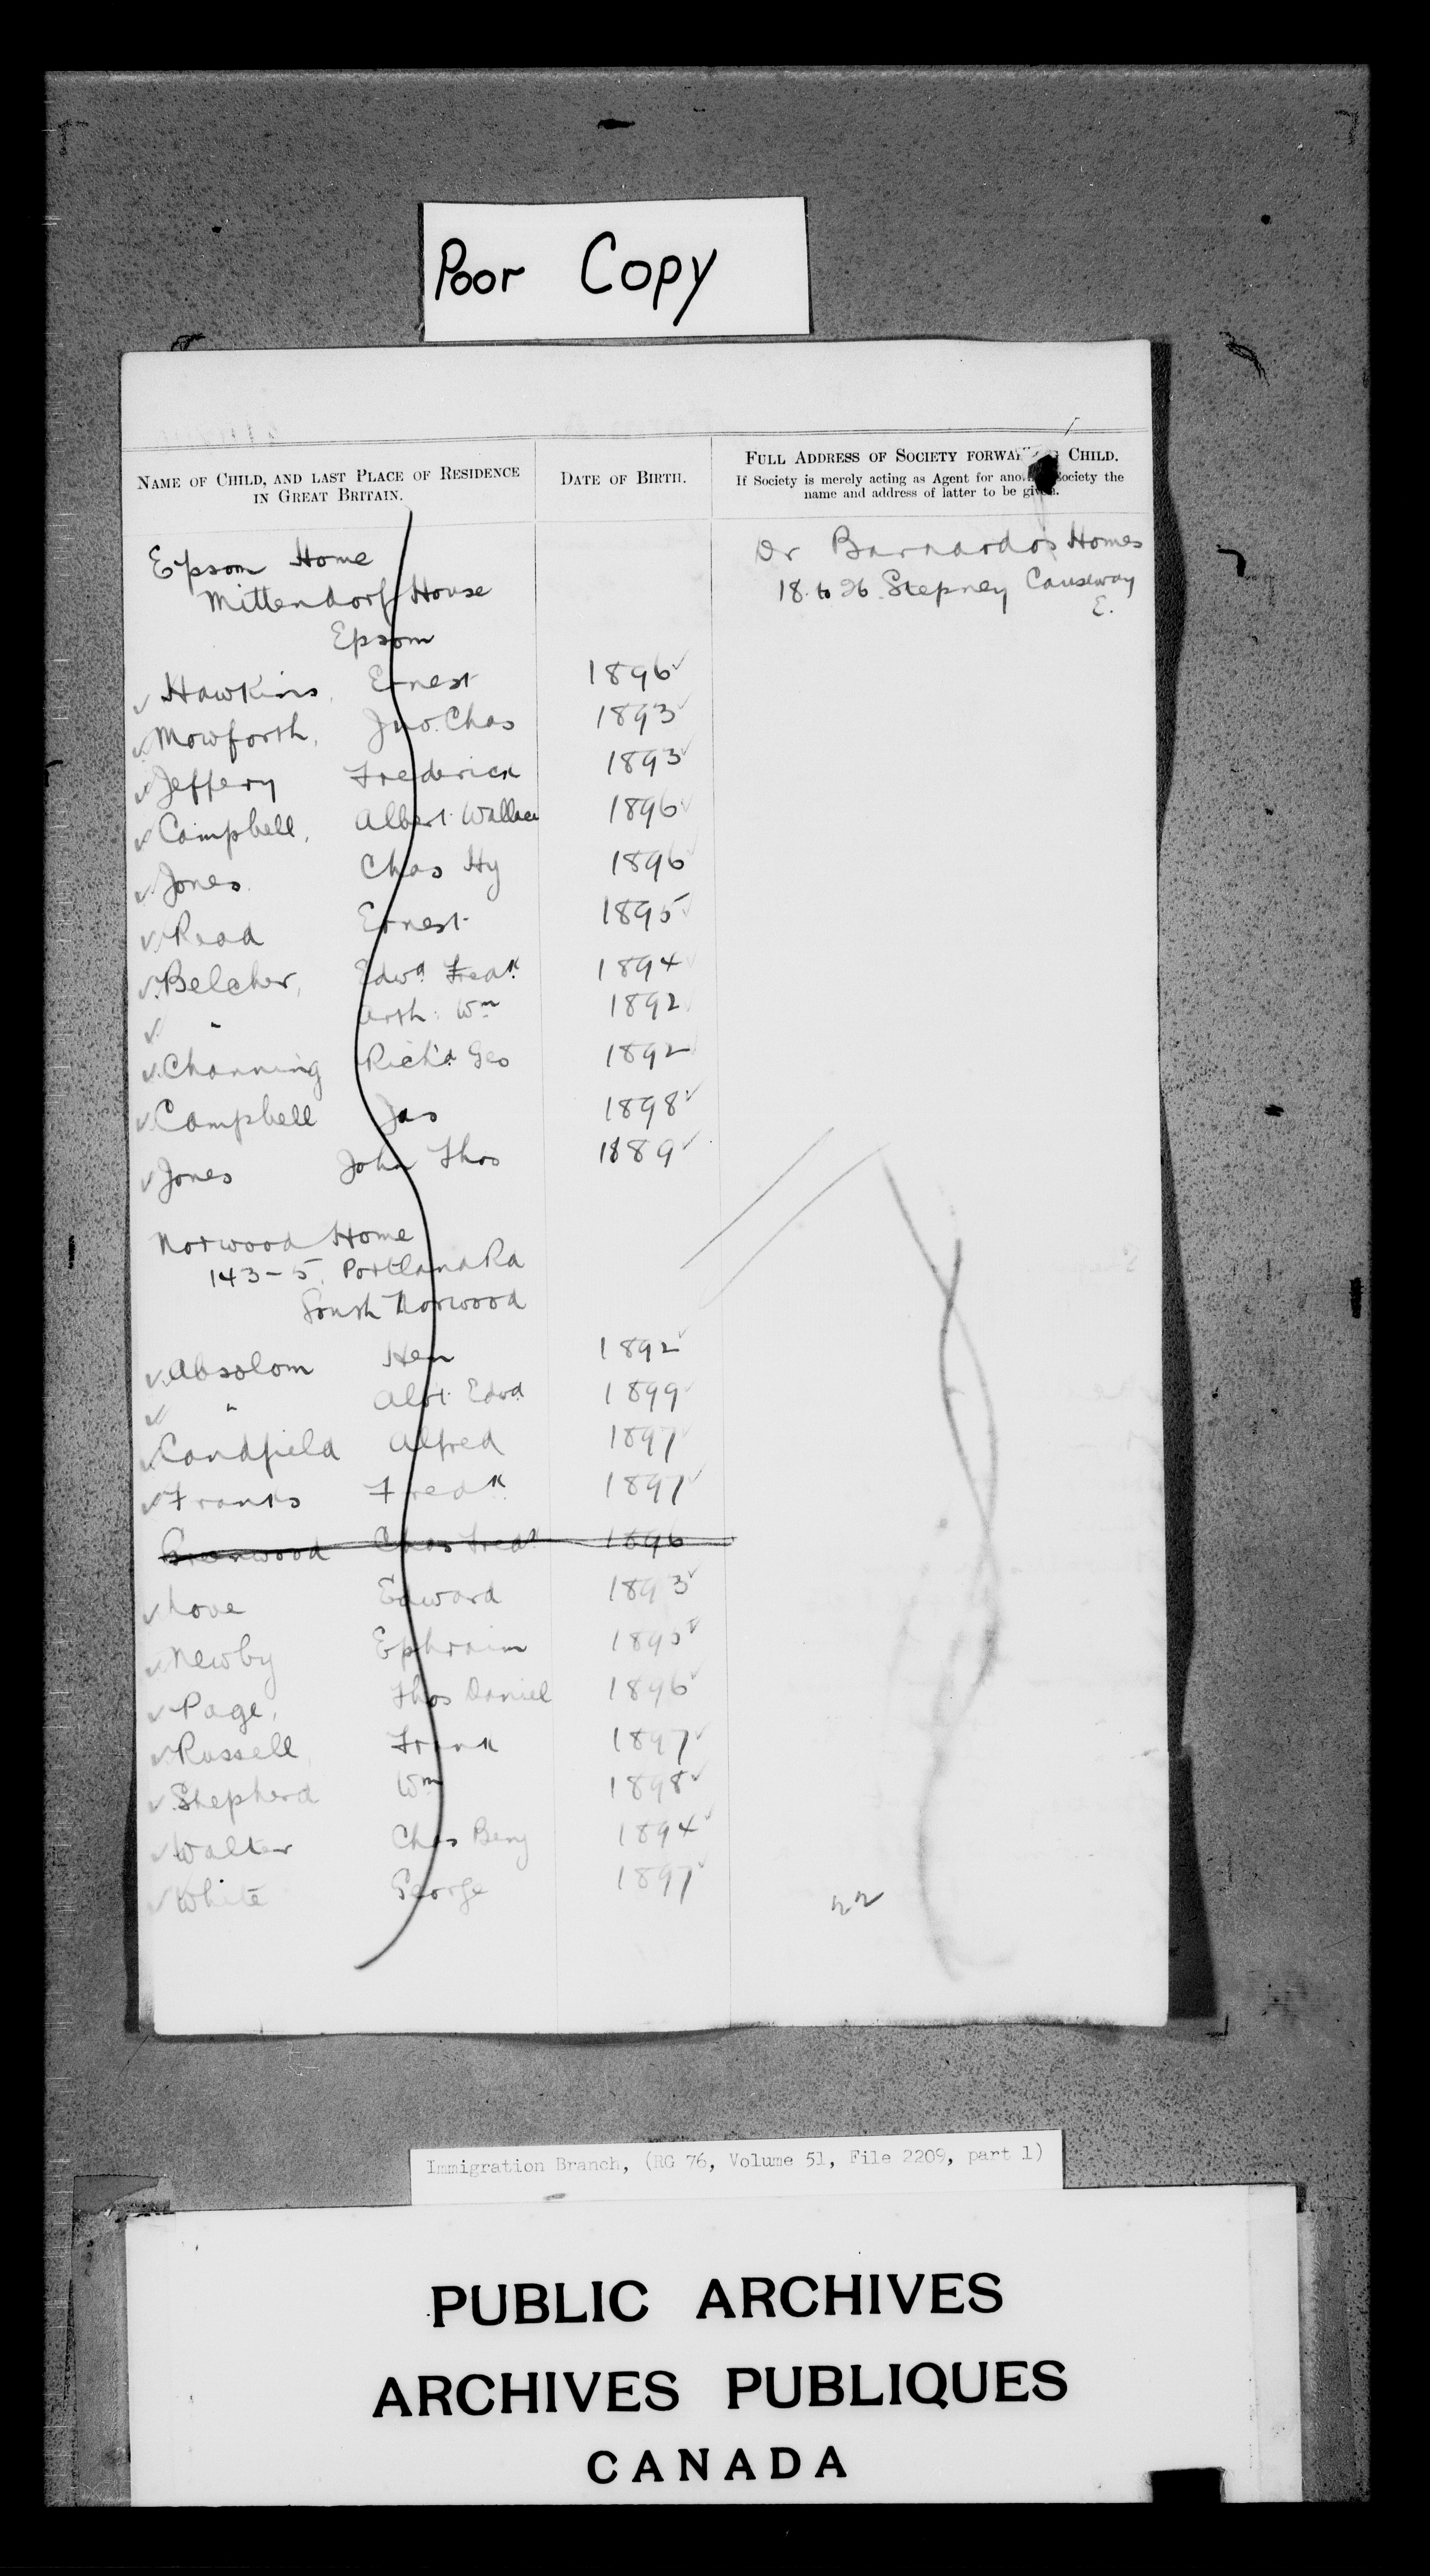 Poor Copy
NAME OF CHILD, AND LAST PLACE OF RESIDENCE
IN GREAT BRITAIN.
DATE OF BIRTH.
FULL ADDRESS OF SOCIETY CHILD.
If Society is merely acting as Agent for Society the
name and address of latter to be given.
Epsom Home
Mittendorf House
Epsom
Dr Barnardo's Homes
18 to 26 Stepney Causeway
E.
✓ Hawkins, Ernest 1896 ✓
✓ Mowforth, Jno. Chas 1893 ✓
✓ Jeffery Frederick 1893 ✓
✓ Campbell, Albert Wallace 1896 ✓
✓ Jones Chas Hy 1896 ✓
✓ Read Ernest 1895 ✓
✓ Belcher, Edwd Fredk 1894 ✓
✓ " Arth. Wm 1892 ✓
✓ Channing Rich'd Geo 1892 ✓
✓ Campbell Jas 1898 ✓
✓ Jones John Thos 1889 ✓
Norwood Home
143-5, Portland Rd
South Norwood
✓ Absolom Hen 1892 ✓
✓ " Albt Edwd 1899 ✓
✓ Candfield Alfred 1897 ✓
✓ Franks Fredk 1897 ✓
Greenwood Chas Fredk 1896
✓ Love Edward 1893 ✓
✓ Newby Ephraim 1895 ✓
✓ Page, Thos Daniel 1896 ✓
✓ Russell, Frank 1897 ✓
✓ Shepherd Wm 1898 ✓
✓ Walter Chas Benj 1894 ✓
✓ White George 1897 ✓
22
Immigration Branch, (RG 76, Volume 51, File 2209, part 1)
PUBLIC ARCHIVES
ARCHIVES PUBLIQUES
CANADA